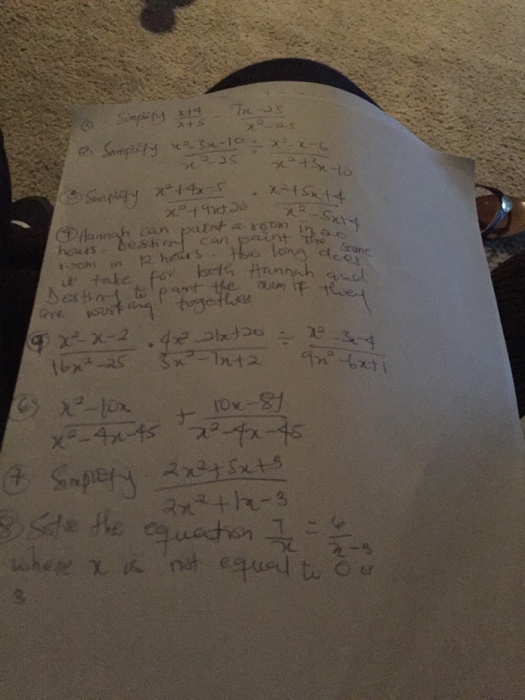 ① Simplify x+4/x+5 - 7x-25/x²-25
2. Simplify x²-3x-10/x²-25 ÷ x²-x-6/x²+3x-10
③ Simplify x²+4x-5/x²+9x+20 · x²+5x+4/x²-5x+4
④ Hannah can paint a room in 20
hours. Destiny can paint the same
room in 12 hours. How long does
it take for both Hannah and
Destiny to paint the room if they
are working together
x²-x-2/16x²-25 · 4x²-21x+20/3x²-7x+2 ÷ x²-3x-4/9x²-6x+1
⑥ x²-10x/x²-4x-45 + 10x-81/x²-4x-45
⑦ Simplify 2x²+5x+3/2x²+1x-3
8) Solve the equation 7/x = 6/x-3
where x is not equal to 0 or
3